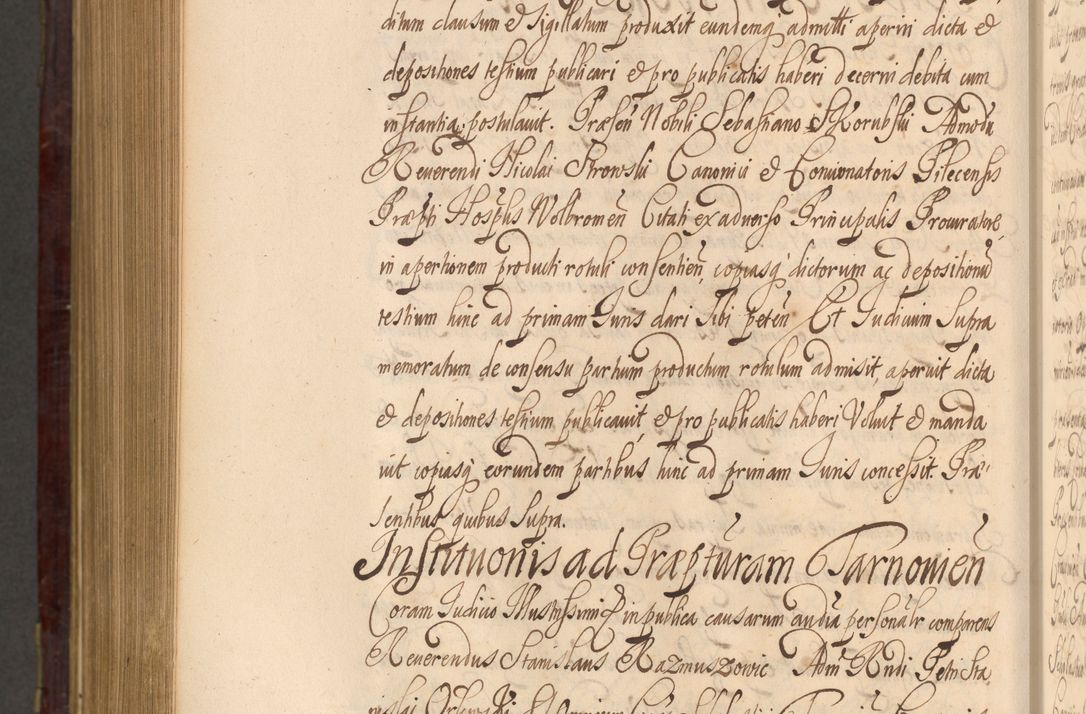 ditum clausum et sigillatum produxit eundemq admitti aperiri dicta et
depositiones testium publicari et pro publicatis haberi decerni debita cum
instantia postulavit. Præsen Nobili Sebastiano Skorubski Admodū
Reuerendi Nicolai Strowski Canonici et Concionatoris Pilecensis
Præpti Hosplis Wolbromen Citati ex adverso Principalis Procuratore,
in apertionem producti rotuli consentien copiasq dictorum ac depositionū
testium hinc ad primam Juris dari sibi peten Et Judicium Supra
memoratum de consensu partium productum rotulum admisit, aperuit dicta
et depositiones testium publicauit, et pro publicatis haberi Voluit et manda
uit copiasq eorundem partibus hinc ad primam Juris concessit. Præ
sentibus quibus supra.
Institutionis ad Præpturam Tarnouien
Coram Judicio Illustrissimi in publica causarum audia personalr comparens
Reuerendus Stanislaus Razmuszowic Adm Rndi Petri Sta
nislai Orlowski